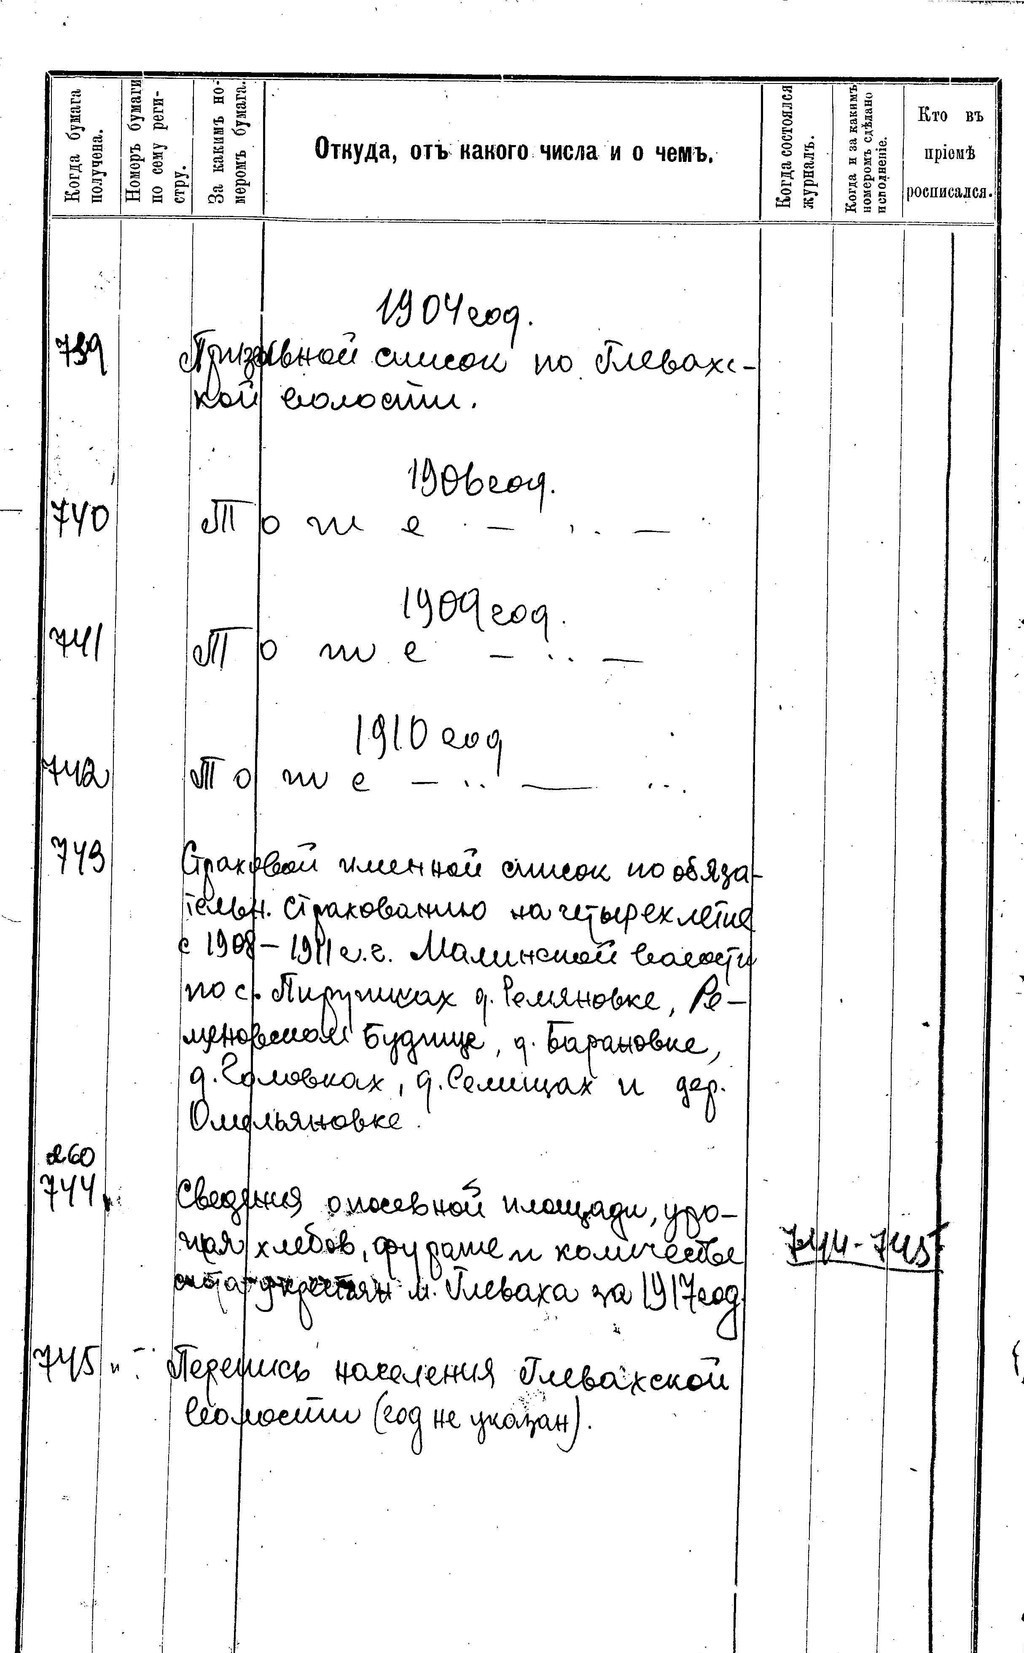 Когда бумага получена.
Номеръ бумаги по сему реги-стру.
За какимъ но-меромъ бумага.
Откуда, отъ какого числа и о чемъ.
Когда состоялся журналъ.
Когда и за какимъ номеромъ сдѣлано исполненіе.
Кто въ пріемѣ росписался.
1904 год.
739 Призывной список по Глевахс-
кой волости.
1906 год.
740 То же - ".. -
1909 год.
741 То же - ".. -
1910 год
742 То же - .. - ...
743 Страховой именной список по обяза-
тельн. страхованию на четырехлетие
с 1908 - 1911 г.г. Малинской волости
по с. Пиружках д. Ремяновке, Ре-
меновской Буднице, д. Барановке,
д. Головках, д. Селищах и дер.
Омельяновке.
260
744 Сведения о посевной площади, уро-
жая хлебов, фураже и количестве
скота у крестьян м. Глеваха за 1917 год
744-745
745 Перепись населения Глевахской
волости (год не указан).